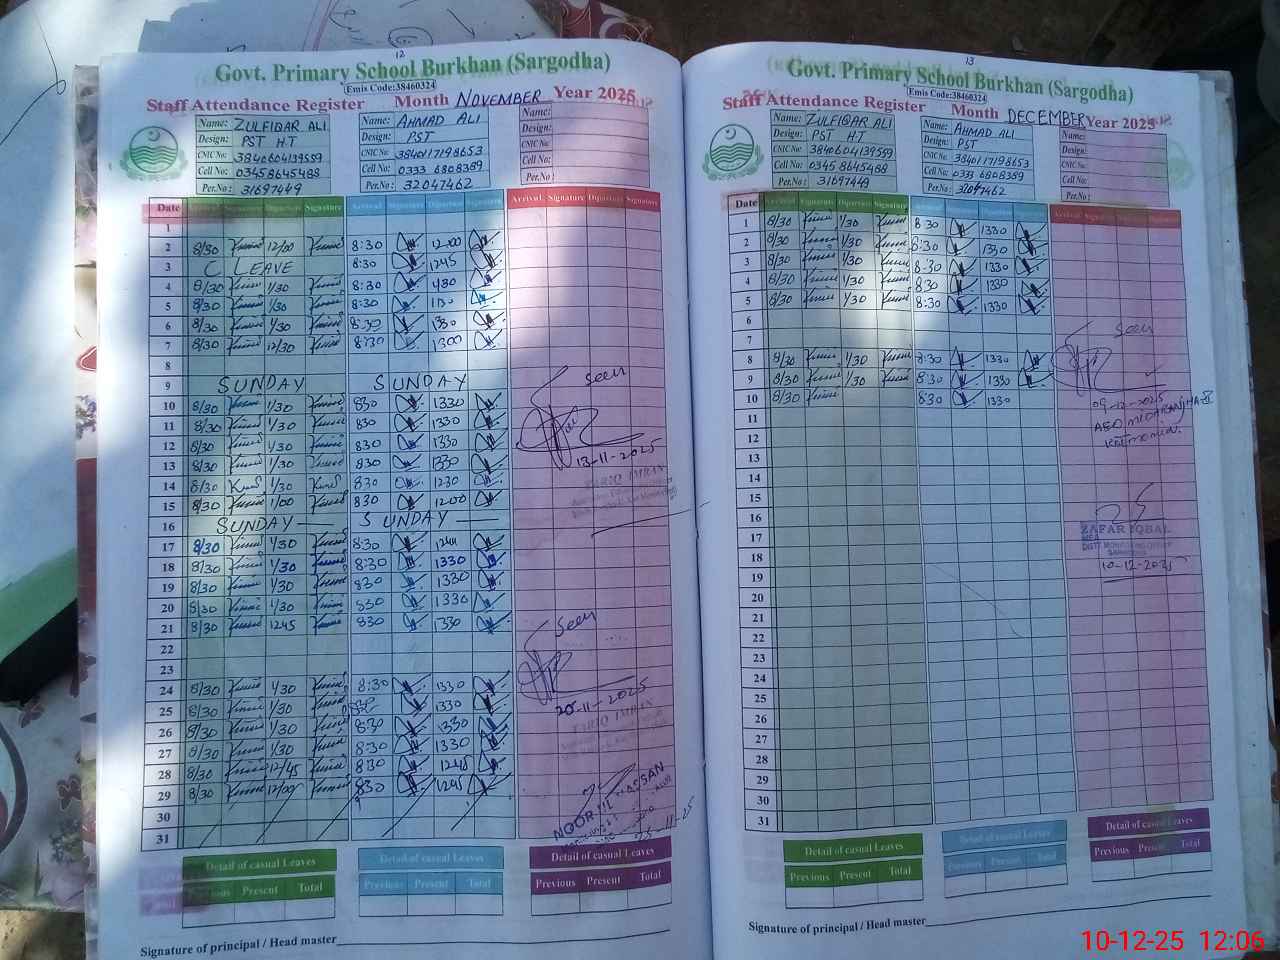 12
Govt. Primary School Burkhan (Sargodha)
Emis Code:38460324
Staff Attendance Register Month NOVEMBER Year 2025
Name: ZULFIQAR ALI Name: AHMAD ALI Name:
Design: PST H.T Design: PST Design:
CNIC No: 3840604139559 CNIC No: 3840117198653 CNIC No:
Cell No: 03458645488 Cell No: 0333 6808389 Cell No:
Per.No: 31697449 Per.No: 32047462 Per.No:
Date Signature Arrival Signature Diparture Signature
1
2 8/30 12/00 8:30 1200
3 C LEAVE 8:30 1245
4 8/30 1/30 8:30
5 8/30 1/30 8:30
6 8/30 1/30 8:30 1330
7 8/30 12/30 8:30 1300
8
9 SUNDAY SUNDAY
10 8/30 1/30 830 1330
11 8/30 1/30 830 1330
12 8/30 1/30 830 1330
13 8/30 1/30 830 1330
14 8/30 1/30 830 1230
15 8/30 1/00 830 1200
16 SUNDAY SUNDAY
17 8/30 1/30 8:30
18 8/30 1/30 8:30 1330
19 8/30 1/30 830 1330
20 8/30 1/30 830 1330
21 8/30 1245 830 1330
22
23
24 8/30 1/30 8:30 1330
25 8/30 1/30 1330
26 8/30 1/30 8:30 1330
27 8/30 1/30 8:30 1330
28 8/30 12/45 8:30 1245
29 8/30 12/00 830 1245
30
31
Seen
13-11-2025
TARIQ IMRAN
Seen
20-11-2025
TARIQ IMRAN
NOOR UL HASSAN
25-11-25
Detail of casual Leaves Detail of casual Leaves Detail of casual Leaves
Previous Present Total Previous Present Total Previous Present Total
Signature of principal / Head master
13
Govt. Primary School Burkhan (Sargodha)
Emis Code:38460324
Staff Attendance Register Month DECEMBER Year 2025
Name: ZULFIQAR ALI Name: AHMAD ALI Name:
Design: PST H.T Design: PST Design:
CNIC No: 3840604139559 CNIC No: 3840117198653 CNIC No:
Cell No: 0345 8645488 Cell No: 0333 6808389 Cell No:
Per.No: 31697449 Per.No: 32047462 Per.No:
Date Arrival Signature Diparture Signature
1 8/30 1/30 8:30 1330
2 8/30 1/30 8:30 1330
3 8/30 1/30 8:30 1330
4 8/30 1/30 830 1330
5 8/30 1/30 8:30 1330
6
7
8 8/30 1/30 8:30 1330
9 8/30 1/30 8:30 1330
10 8/30 830 1330
11
12
13
14
15
16
17
18
19
20
21
22
23
24
25
26
27
28
29
30
31
Seen
09-12-2025
ZAFAR IQBAL
MEA
10-12-2025
Detail of casual Leaves Detail of casual Leaves Detail of casual Leaves
Previous Present Total Previous Present Total Previous Present Total
Signature of principal / Head master
10-12-25 12:06